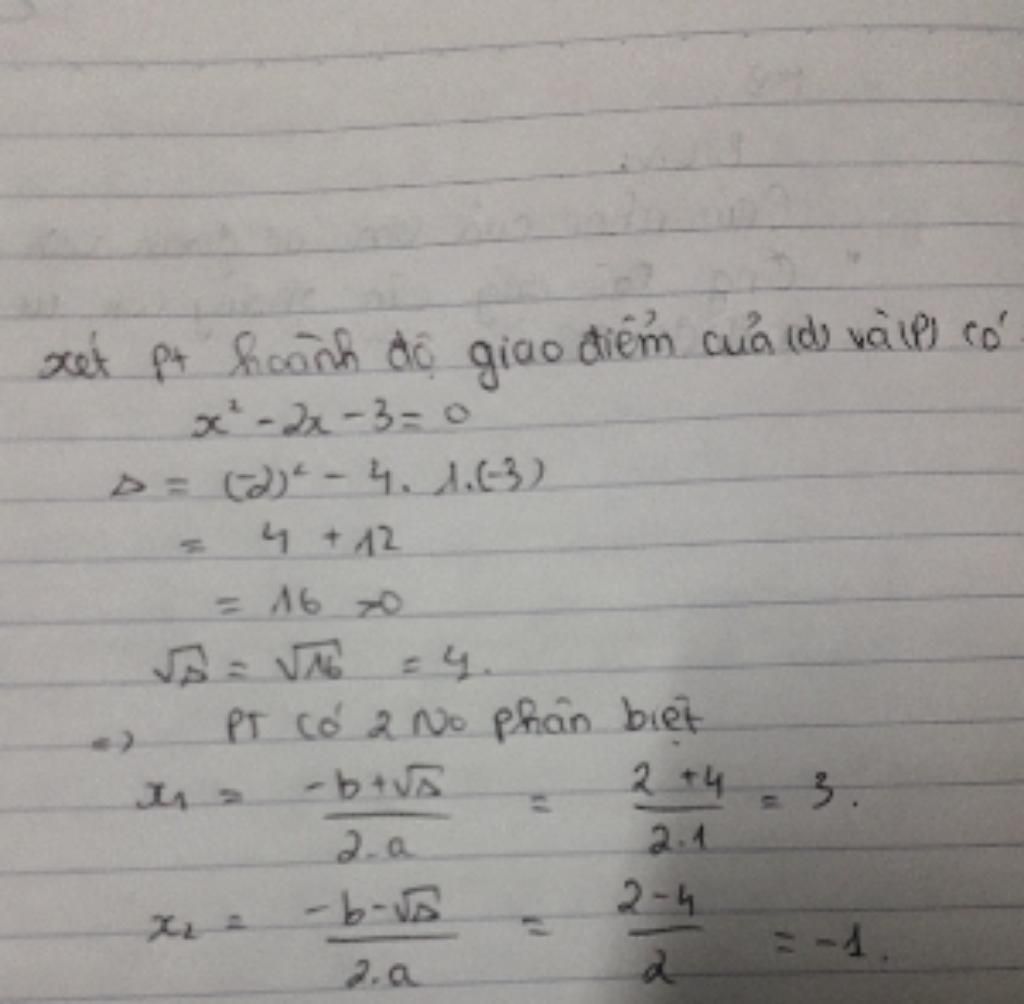 xét pt hoành độ giao điểm của (d) và (P) có
x² - 2x - 3 = 0
Δ = (-2)² - 4. 1.(-3)
= 4 + 12
= 16 >0
√Δ = √16 = 4.
=> PT có 2 No phân biệt
x₁ = (-b+√Δ)/(2.a) = (2+4)/(2.1) = 3.
x₂ = (-b-√Δ)/(2.a) = (2-4)/2 = -1.